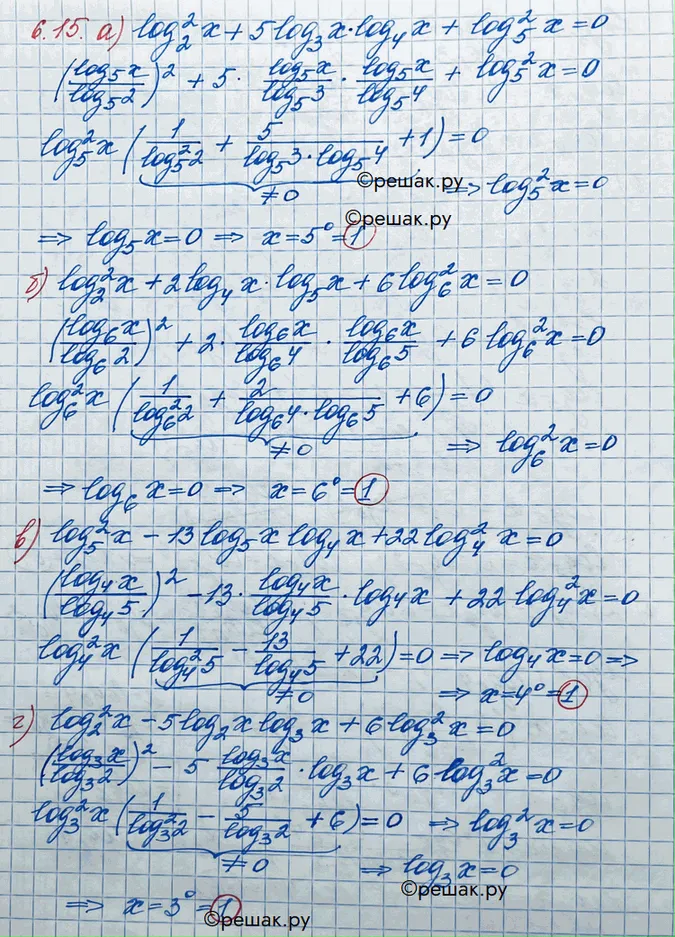 6.15. а) log₂²x + 5log₃x·log₄x + log₅²x = 0
(log₅x/log₅2)² + 5· log₅x/log₅3 · log₅x/log₅4 + log₅²x = 0
log₅²x (1/log₅²2 + 5/(log₅3·log₅4) + 1) = 0
≠0
©решак.ру
⇒ log₅²x = 0
©решак.ру
⇒ log₅x = 0 ⇒ x = 5⁰ = 1
б) log₂²x + 2log₄x·log₅x + 6log₆²x = 0
(log₆x/log₆2)² + 2· log₆x/log₆4 · log₆x/log₆5 + 6log₆²x = 0
log₆²x (1/log₆²2 + 2/(log₆4·log₆5) + 6) = 0
≠0
⇒ log₆²x = 0
⇒ log₆x = 0 ⇒ x = 6⁰ = 1
в) log₅²x − 13log₅x log₄x + 22log₄²x = 0
(log₄x/log₄5)² − 13· log₄x/log₄5 · log₄x + 22log₄²x = 0
log₄²x (1/log₄²5 − 13/log₄5 + 22) = 0 ⇒ log₄x = 0 ⇒
≠0
⇒ x = 4⁰ = 1
г) log₂²x − 5log₂x log₃x + 6log₃²x = 0
(log₃x/log₃2)² − 5 log₃x/log₃2 · log₃x + 6log₃²x = 0
log₃²x (1/log₃²2 − 5/log₃2 + 6) = 0 ⇒ log₃²x = 0
≠0
⇒ log₃x = 0
©решак.ру
⇒ x = 3⁰ = 1
©решак.ру